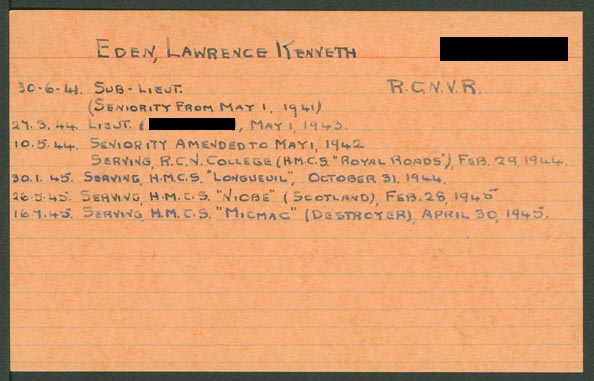 EDEN, LAWRENCE KENNETH
30-6-41. SUB-LIEUT. R.C.N.V.R.
(SENIORITY FROM MAY 1, 1941)
27.3.44. LIEUT. ( , MAY 1, 1943.
10.5.44. SENIORITY AMENDED TO MAY 1, 1942
SERVING, R.C.N. COLLEGE (H.M.C.S. "ROYAL ROADS"), FEB. 29, 1944.
30.1.45. SERVING, H.M.C.S. "LONGUEUIL", OCTOBER 31, 1944.
26.5.45. SERVING, H.M.C.S. "NIOBE" (SCOTLAND), FEB. 28, 1945
16.7.45. SERVING, H.M.C.S. "MICMAC" (DESTROYER), APRIL 30, 1945.